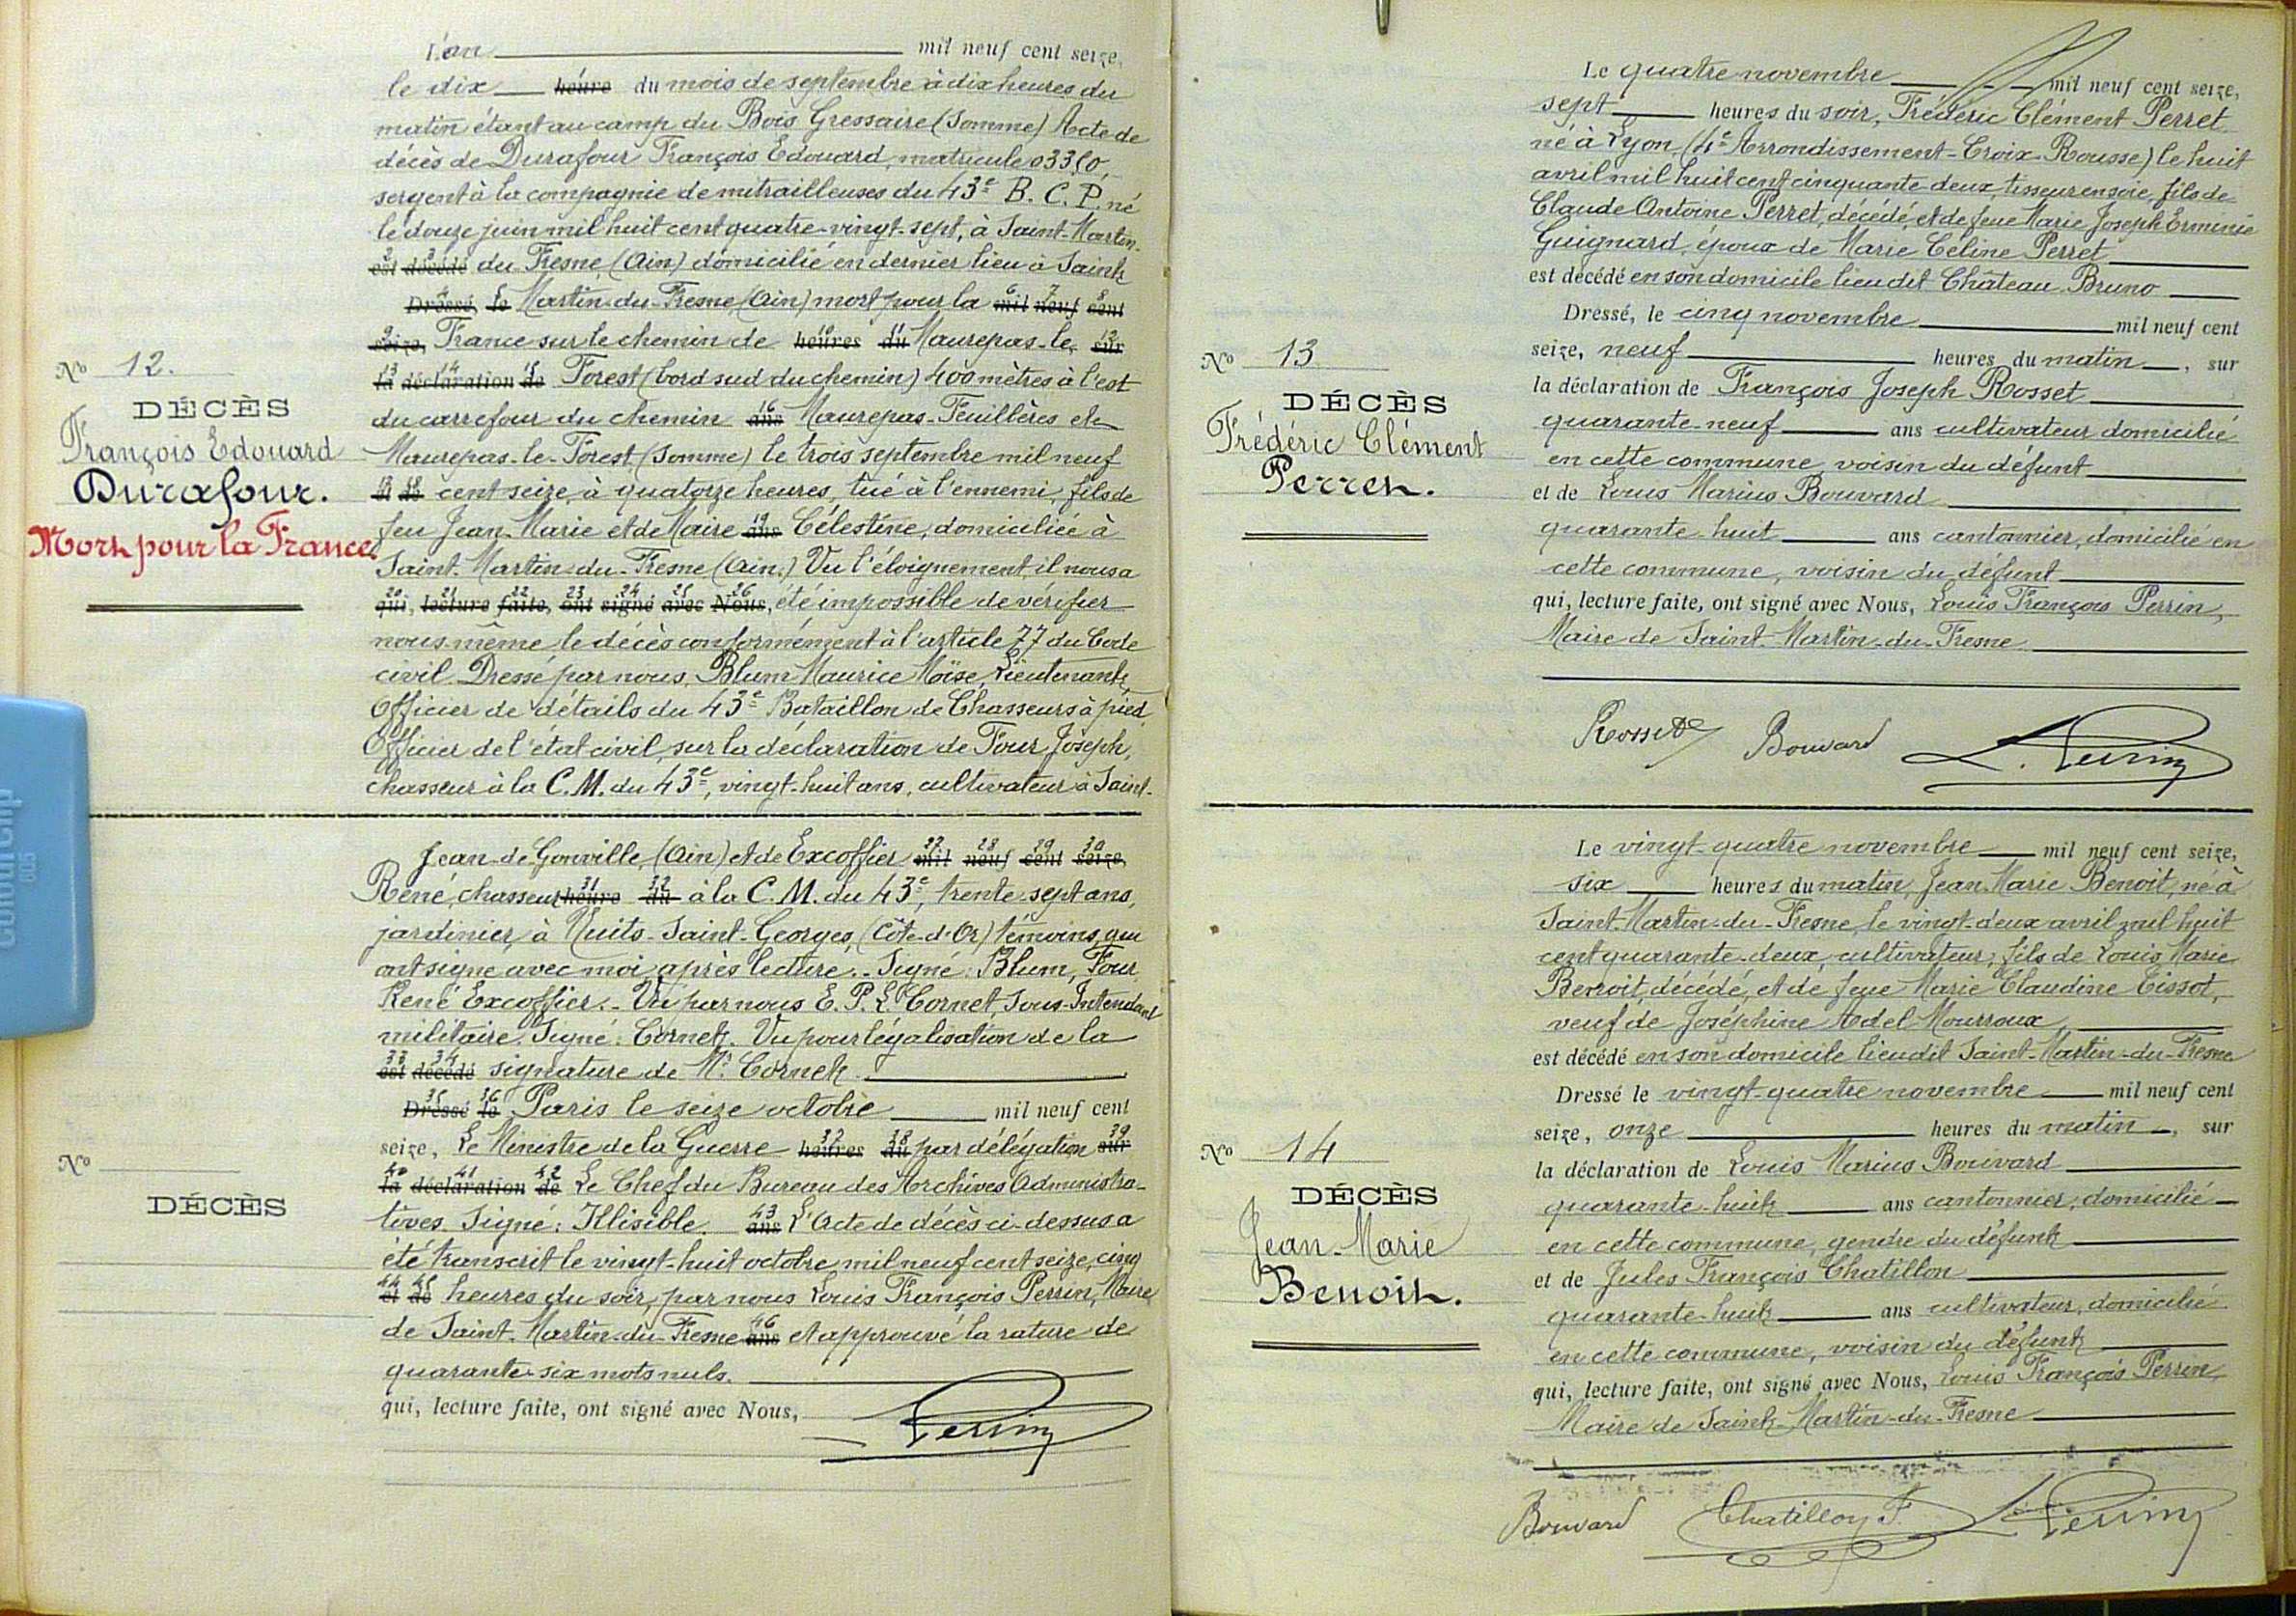 L'an mil neuf cent seize,
le dix heure du mois de septembre à dix heures du
matin étant au camp du Bois Gressaire (Somme) Acte de
décès de Durafour François Edouard, matricule 03350,
sergent à la compagnie de mitrailleuses du 43e B. C. P. né
le douze juin mil huit cent quatre-vingt-sept, à Saint-Martin-
est décédé du-Fresne (Ain) domicilié en dernier lieu à Saint
Dressé, le Martin-du-Fresne (Ain) mort pour la mil neuf cent
seize, France sur le chemin de heures du Maurepas-le- sur
la déclaration de Forest (bord sud du chemin) 400 mètres à l'est
du carrefour du chemin ans Maurepas-Feuillères et
Maurepas-le-Forest (Somme) le trois septembre mil neuf
et de cent seize, à quatorze heures, tué à l'ennemi, fils de
feu Jean-Marie et de Maire ans Célestine, domiciliée à
Saint-Martin-du-Fresne (Ain.) Vu l'éloignement, il nous a
qui, lecture faite, ont signé avec Nous, été impossible de vérifier
nous-même le décès conformément à l'article 77 du Code
civil. Dressé par nous, Blum Maurice Moïse, Lieutenant,
Officier de détails du 43e Bataillon de Chasseurs à pied,
Officier de l'état civil, sur la déclaration de Four Joseph,
chasseur à la C. M. du 43e, vingt-huit ans, cultivateur à Saint-
No 12.
DÉCÈS
François Edouard
Durafour.
Mort pour la France
Jean-de-Gonville (Ain) et de Excoffier mil neuf cent seize,
René, chasseur heure du à la C. M. du 43e, trente sept ans,
jardinier, à Nuits-Saint-Georges, (Côte-d'Or) témoins, qui
ont signé avec moi après lecture. - Signé: Blum, Four
René Excoffier. - Vu par nous E. P. L. Cornet, Sous-Intendant
militaire. Signé: Cornet. Vu pour légalisation de la
est décédé signature de Mr Cornet.
Dressé le Paris le seize octobre mil neuf cent
seize, Le Ministre de la Guerre heures du par délégation sur
la déclaration de Le Chef du Bureau des Archives Administra-
tives. Signé: Illisible. ans L'Acte de décès ci-dessus a
été transcrit le vingt-huit octobre mil neuf cent seize, cinq
et de heures du soir, par nous Louis François Perrin, Maire
de Saint-Martin-du-Fresne ans et approuvé la rature de
quarante-six mots nuls.
qui, lecture faite, ont signé avec Nous,
Perrin
No
DÉCÈS
Le quatre novembre mil neuf cent seize,
sept heures du soir, Frédéric Clément Perret
né à Lyon (4e Arrondissement-Croix-Rousse) le huit
avril mil huit cent cinquante-deux, tisseur en soie, fils de
Claude Antoine Perret, décédé, et de feue Marie Joseph Erminie
Guignard, époux de Marie Céline Perret
est décédé en son domicile lieu dit Château-Bruno
Dressé, le cinq novembre mil neuf cent
seize, neuf heures du matin, sur
la déclaration de François Joseph Rosset
quarante-neuf ans cultivateur domicilié
en cette commune, voisin du défunt
et de Louis Marius Bouvard
quarante-huit ans cantonnier, domicilié en
cette commune, voisin du défunt
qui, lecture faite, ont signé avec Nous, Louis François Perrin,
Maire de Saint-Martin-du-Fresne
Rosset Bouvard L. Perrin
No 13
DÉCÈS
Frédéric Clément
Perret.
Le vingt-quatre novembre mil neuf cent seize,
six heures du matin, Jean-Marie Benoit, né à
Saint-Martin-du-Fresne, le vingt-deux avril mil huit
cent quarante-deux, cultivateur, fils de Louis Marie
Benoit, décédé, et de feue Marie Claudine Tissot,
veuf de Joséphine Adel Mourroux
est décédé en son domicile lieu dit Saint-Martin-du-Fresne
Dressé le vingt-quatre novembre mil neuf cent
seize, onze heures du matin, sur
la déclaration de Louis Marius Bouvard
quarante-huit ans cantonnier, domicilié
en cette commune, gendre du défunt
et de Jules François Chatillon
quarante-huit ans cultivateur, domicilié
en cette commune, voisin du défunt
qui, lecture faite, ont signé avec Nous, Louis François Perrin,
Maire de Saint-Martin-du-Fresne
Bouvard Chatillon F. L. Perrin
No 14
DÉCÈS
Jean-Marie
Benoit.